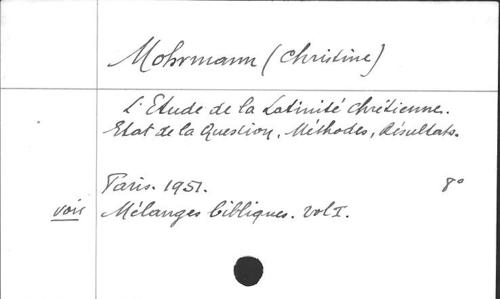 Mohrmann (Christine)
L'Etude de la Latinité chrétienne.
Etat de la Question, Méthodes, Résultats.
Paris. 1951. 8°
voir Mélanges bibliques. vol I.